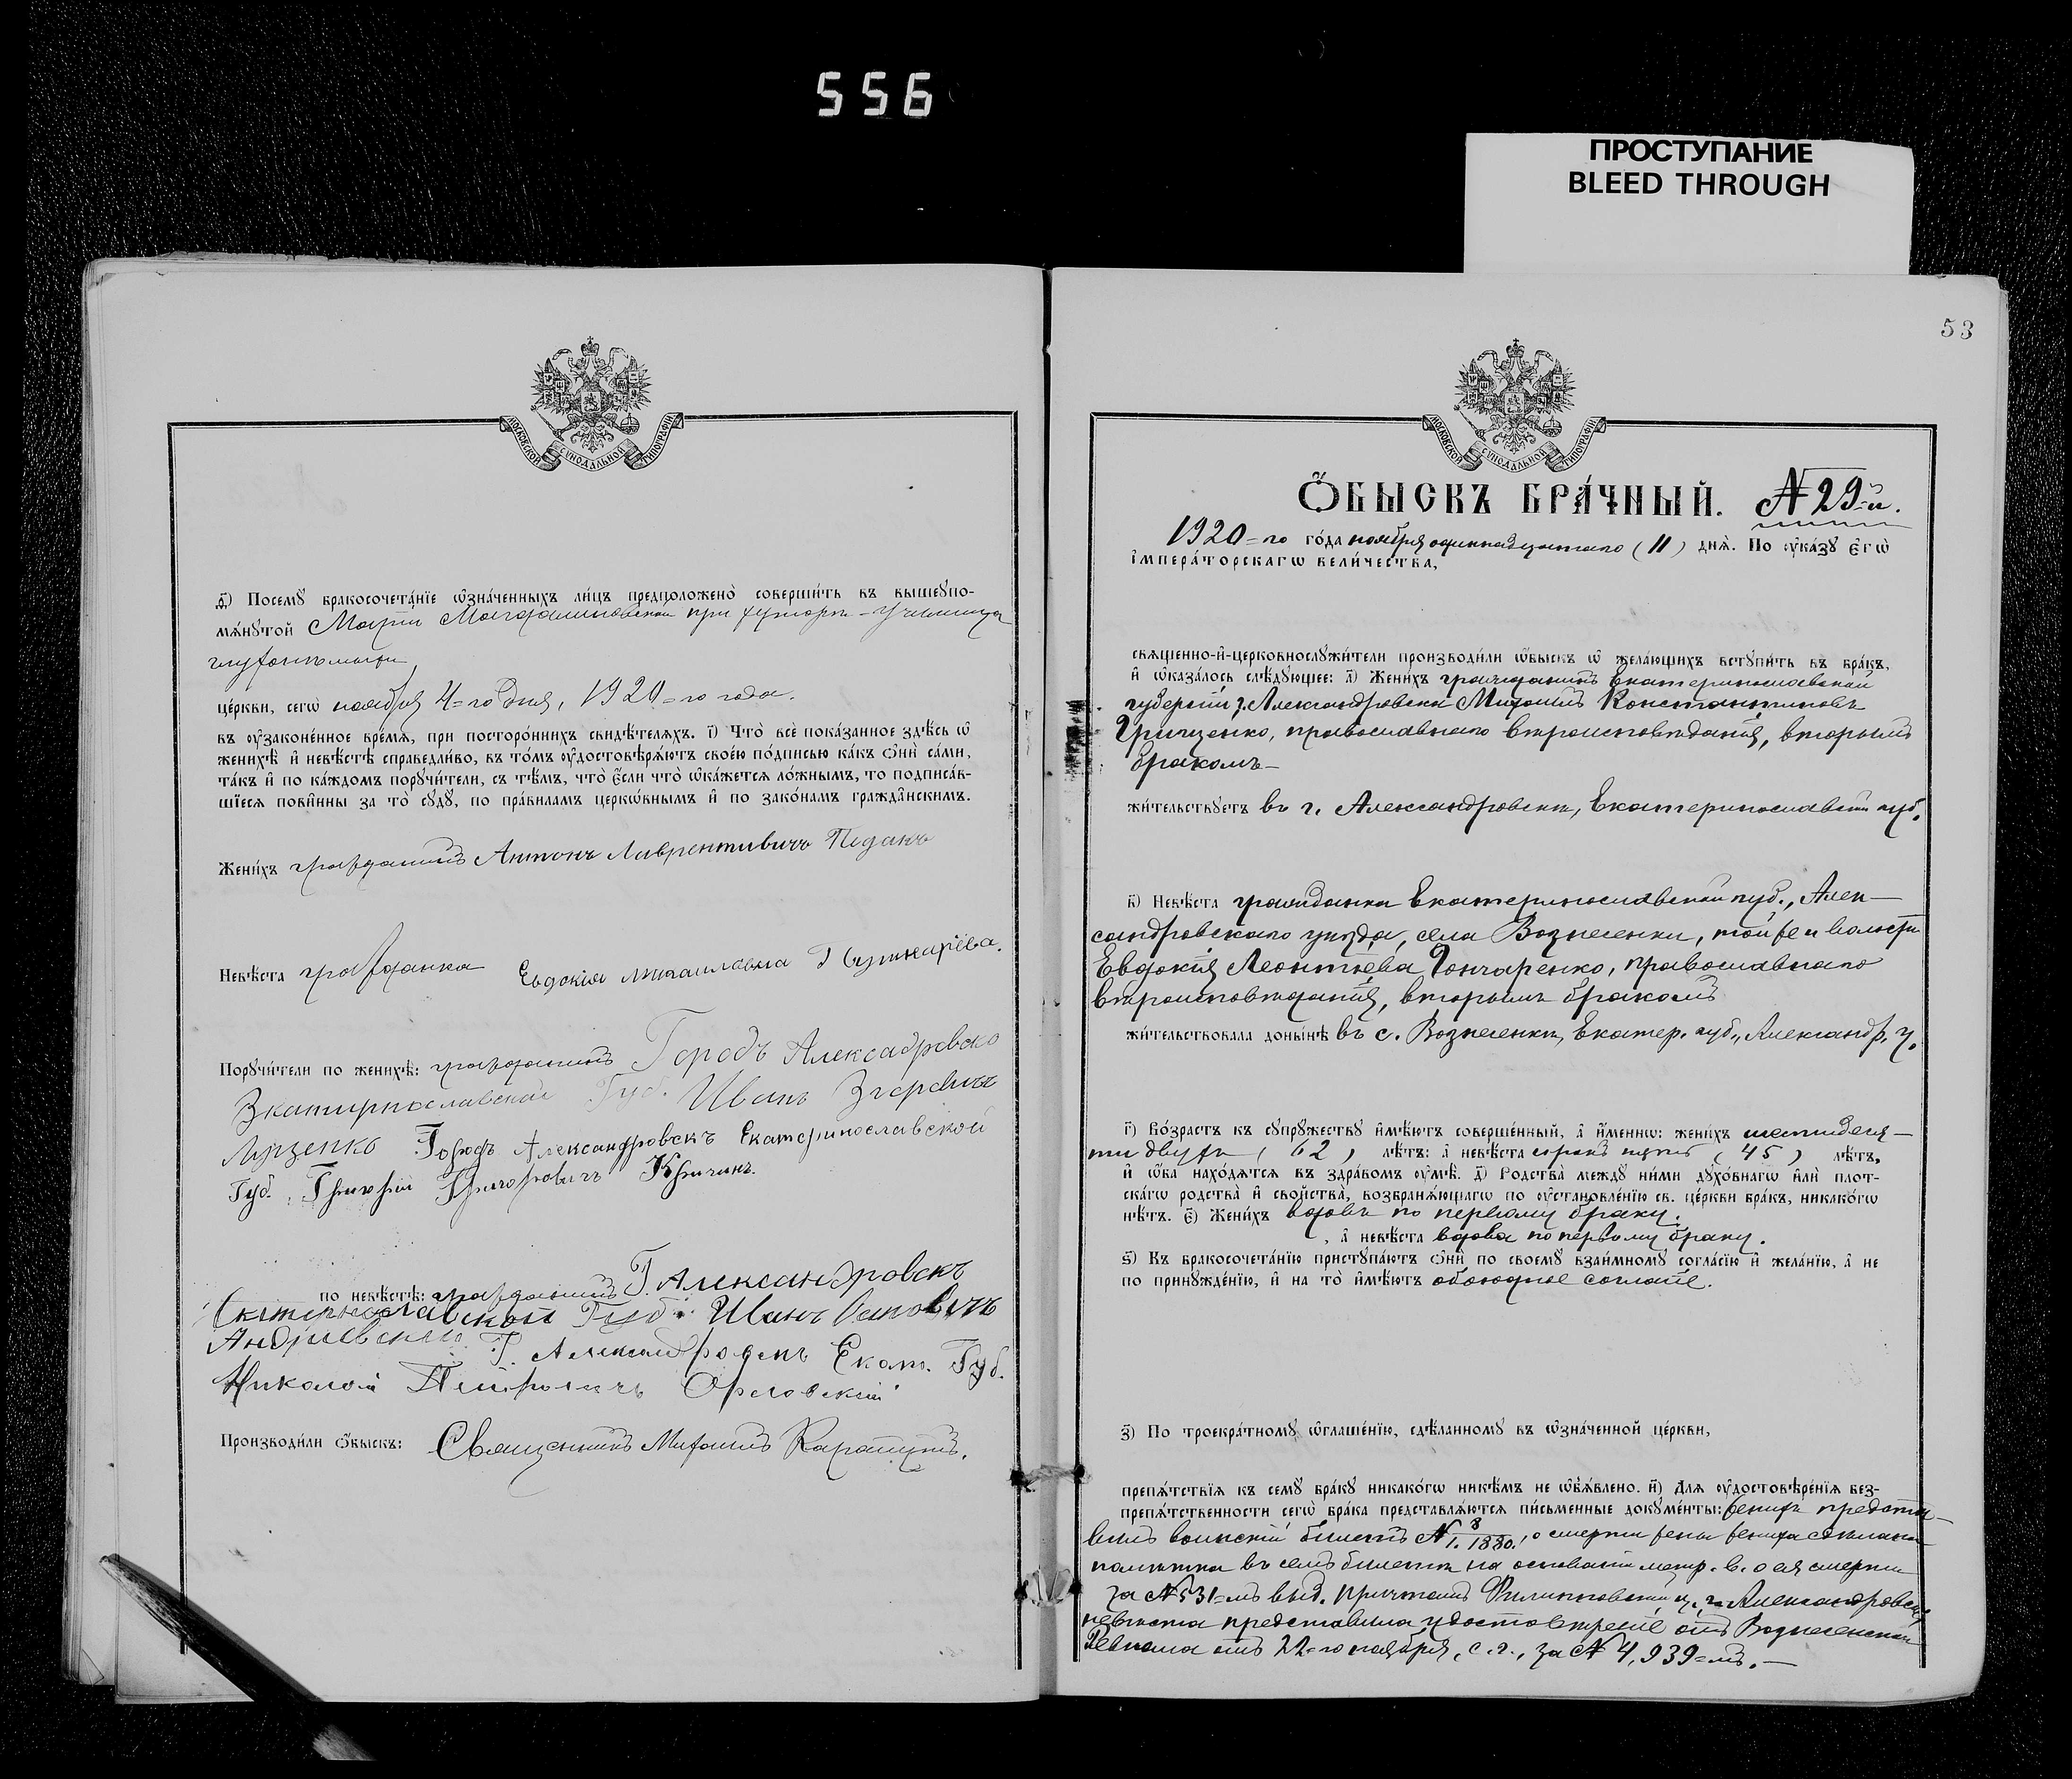 556
ПРОСТУПАНИЕ
BLEED THROUGH
МОСКОВСКОЙ СѴНОДАЛЬНОЙ ТИПОГРАФІИ
ѳ҃) Посемꙋ̀ бракосочета́нїе ѡ҆зна́ченныхъ ли́цъ предположено̀ соверши́ть въ вышеꙋпо-
мѧ́нꙋтой Маріи Магдалиновской при хуторѣ-училища
глухонѣмыхъ
це́ркви, сегѡ̀ ноября 4=го дня, 1920=го года.
въ ᲂу҆зако́не́нное вре́мѧ, при посторо́ннихъ свидѣ́телѧхъ. і҃) Что̀ всѐ пока́занное здѣ́сь ѡ҆
женихѣ̀ и҆ невѣ́стѣ справедли́во, въ то́мъ ᲂу҆достовѣрѧ́ютъ свое́ю по́дписью ка́къ ѻ҆нѝ са́ми,
та́къ и҆ по ка́ждомъ порꙋчи́тели, съ тѣ́мъ, что̀ є҆́сли что̀ ѡ҆ка́жетсѧ ло́жнымъ, то подписа́в-
шїесѧ пови́нны за то̀ сꙋдꙋ̀, по пра́виламъ церко́внымъ и҆ по зако́намъ гражда́нскимъ.
Жени́хъ гражданинъ Антонъ Лаврентиевичъ Педанъ
Невѣ́ста гражданка Евдокія Михаиловна
Порꙋчи́тели по женихѣ̀: гражданинъ Городъ Алексадровско
Экатирнославской Губ. Иванъ
Луценко Городъ Александровскъ Екатеринославской
Губ. Григорій Григоровичъ Кричинъ.
по невѣ́стѣ: гражданинъ Г. Александровскъ
Екатернославской Губ. Иванъ Осиповичъ
Андриевский Г. Александровскъ Екат. Губ.
Николай Петровичъ Орловскій
Производи́ли ѻ҆́быскъ: Священникъ Михаилъ Карапунъ.
53
МОСКОВСКОЙ СѴНОДАЛЬНОЙ ТИПОГРАФІИ
Ѻ҆́БЫСКЪ БРА́ЧНЫЙ. №29-й.
1920=го го́да ноября одиннадцатаго (11) днѧ̀. По ᲂу҆ка́зꙋ є҆гѡ̀
і҆мпера́торскагѡ вели́чества,
свѧще́нно-и҆-церковнослꙋжи́тели производи́ли ѻ҆́быскъ ѡ҆ жела́ющихъ встꙋпи́ть въ бра́къ,
и҆ ѡ҆каза́лось слѣ́дꙋющее: а҃) Жени́хъ гражданинъ Екатеринославской
губерніи г. Александровска Михаилъ Константиновъ
Грищенко, православнаго вѣроисповѣданія, вторымъ
бракомъ—
жи́тельствꙋетъ въ г. Александровскѣ, Екатеринославской губ.
в҃) Невѣ́ста гражданка Екатеринославской губ., Алек—
сандровскаго уѣзда, села Вознесенки, той же и волости
Евдокія Леонтьева Гончаренко, православнаго
вѣроисповѣданія, вторымъ бракомъ
жи́тельствовала доны́нѣ въ с. Вознесенкѣ, Екатер. губ., Александр. у.
г҃) Во́зрастъ къ сꙋпрꙋ́жествꙋ и҆мѣ́ютъ соверше́нный, а҆ и҆́меннѡ: жени́хъ шестидеся—
ти двухъ (62) лѣ́тъ: а҆ невѣ́ста сорокъ пять (45) лѣ́тъ,
и҆ ѻ҆́ба нахо́дѧтсѧ въ здра́вомъ ᲂу҆мѣ̀. д҃) Родства̀ междꙋ̀ ни́ми дꙋхо́внагѡ и҆лѝ плот-
ска́гѡ родства̀ и҆ сво́йства̀, возбранѧ́ющагѡ по ᲂу҆становле́нїю св. це́ркви бра́къ, никако́гѡ
нѣ́тъ. є҃) Жени́хъ вдовъ по первому браку.
, а҆ невѣ́ста вдова по первому браку.
ѕ҃) Къ бракосочета́нїю пристꙋпа́ютъ ѻ҆нѝ по своемꙋ̀ взаи́мномꙋ согла́сїю и҆ жела́нїю, а҆ не
по принꙋжде́нїю, и҆ на то̀ и҆мѣ́ютъ обоюдное согласіе.
з҃) По троекра́тномꙋ ѡ҆глаше́нїю, сдѣ́ланномꙋ въ ѡ҆зна́ченной це́ркви,
препѧ́тствїѧ къ семꙋ̀ бра́кꙋ никако́гѡ никѣ́мъ не ѡ҆б̾ѧ́влено. и҃) Длѧ ᲂу҆достовѣре́нїѧ без-
препѧ́тственности сегѡ̀ бра́ка представлѧ́ютсѧ пи́сьменные докꙋме́нты: женихъ предста—
вилъ воинскій билетъ № 8/1. 1880., о смерти жены жениха сдѣлана
помѣтка въ семъ билетѣ на основаніи метр. в. о ея смерти
за №531=мъ выд. причтомъ Филипповской ц. г. Александровска
невѣста представила удостовѣреніе отъ Вознесенскаго
Ревкома отъ 22=го ноября, с. г., за № 4,939=мъ.—